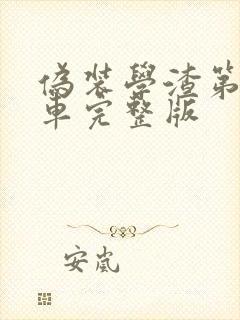 偽裝學渣第
車完整版
安嵐